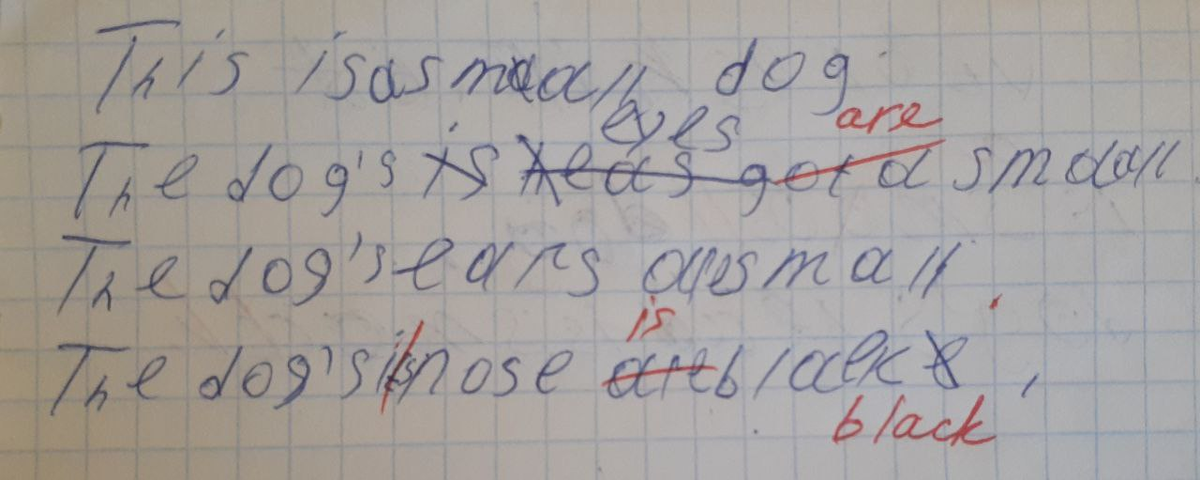 This is a small dog.
eyes are
The dog's is heas got a small.
The dog's ears are small.
is
The dog's is nose are blalck.
black